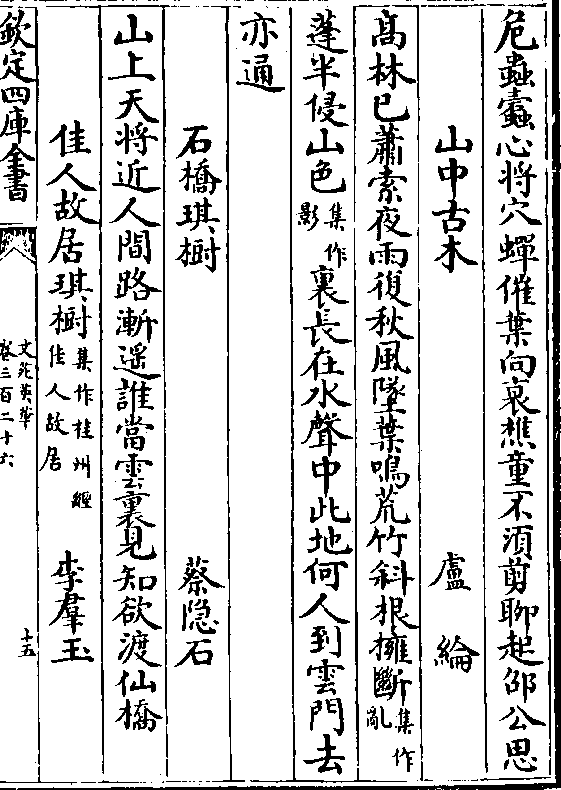 危蟲蠹心将穴蟬催葉向衰樵童不須剪聊起邵公思
山中古木 盧綸
髙林已蕭索夜雨復秋風墜葉鳴荒竹斜根擁斷集作亂
蓬半侵山色集作影裏長在水聲中此地何人到雲門去
亦通
石橋琪樹 蔡隐石
山上天将近人間路漸遥誰當雲裏見知欲渡仙橋
佳人故居琪樹集作桂州經佳人故居 李羣玉
欽定四庫全書
文苑英華
卷三百二十六
十五